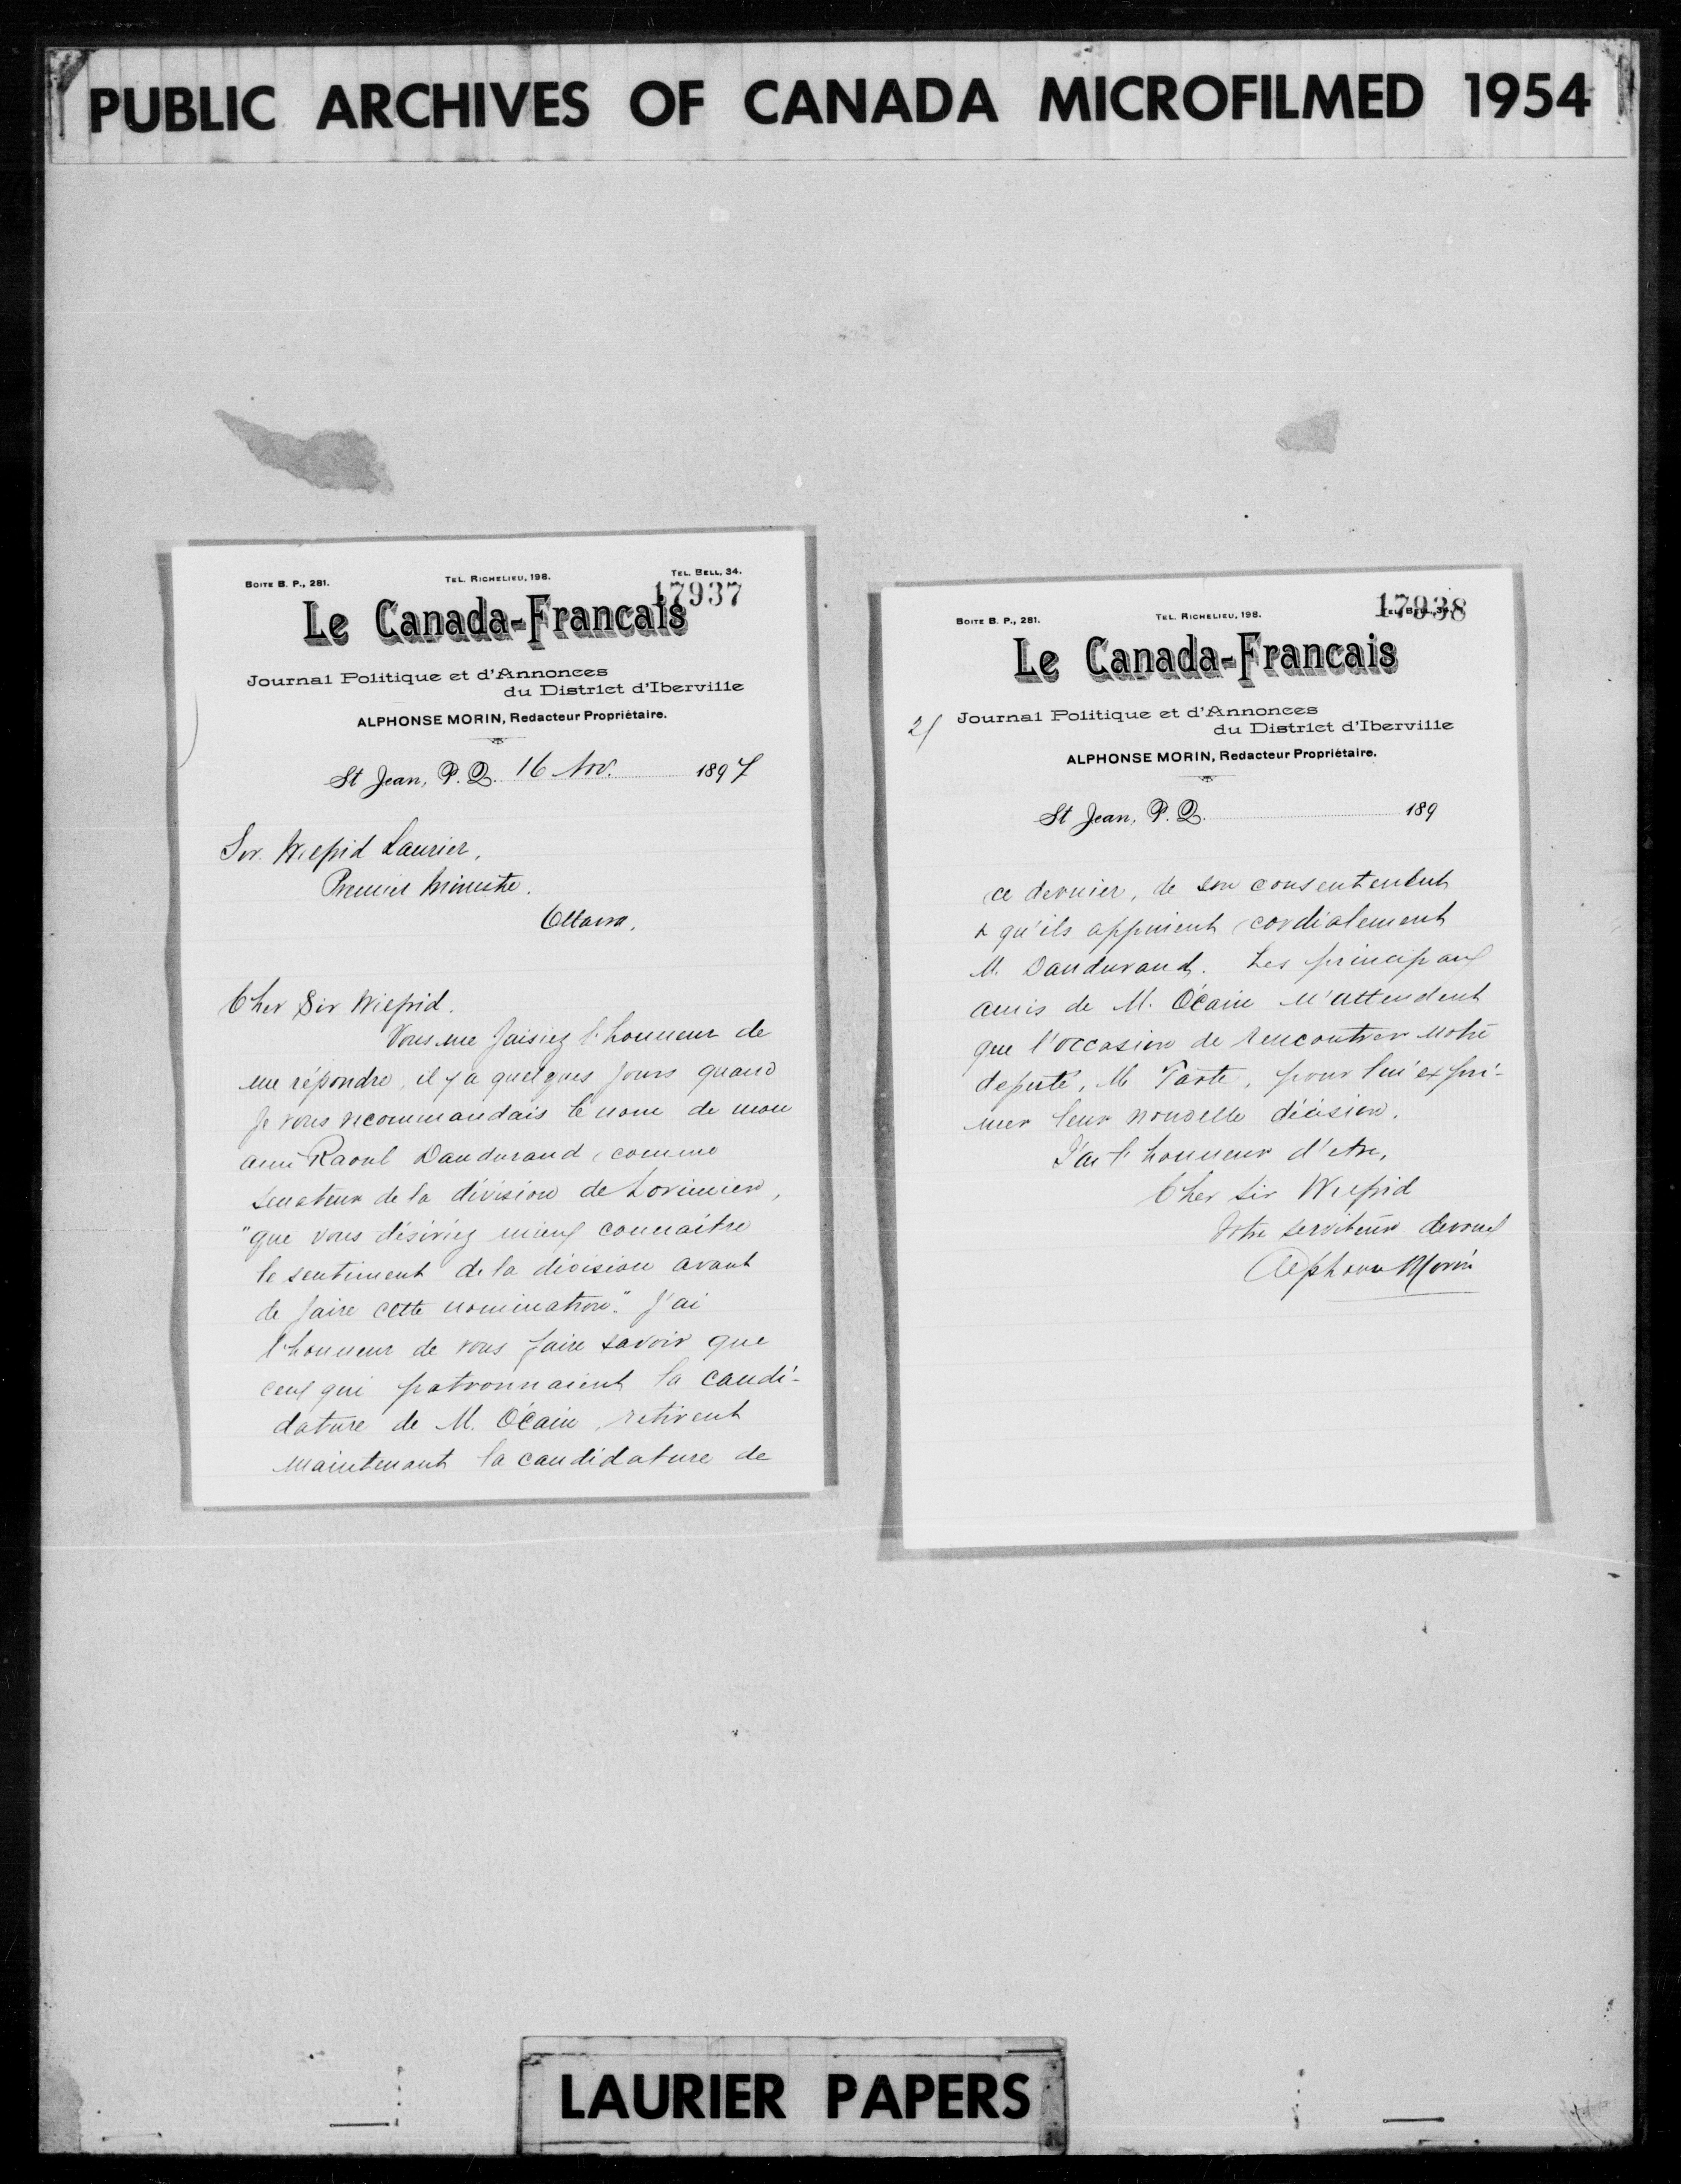 PUBLIC ARCHIVES OF CANADA MICROFILMED 1954
BOITE B. P., 281.
TEL. RICHELIEU, 198.
TEL. BELL, 34.
17937
Le Canada-Francais
Journal Politique et d'Annonces
du District d'Iberville
ALPHONSE MORIN, Redacteur Propriétaire.
St Jean, P. Q. 16 Nov. 1897
Sir Wilfrid Laurier,
Premier Ministre.
Ottawa.
Cher Sir Wilfrid.
Vous me faisiez l'honneur de
me répondre, il y a quelques jours quand
je vous recommandais le nom de mon
ami Raoul Dandurand, comme
senateur de la division de Lorimier,
"que vous désiriez mieux connaitre
le sentiment de la division avant
de faire cette nomination". J'ai
l'honneur de vous faire savoir que
ceux qui patronnaient la candi-
dature de M. Ócain, retirent
maintenant la candidature de
17938
BOITE B. P., 281.
TEL. RICHELIEU, 198.
TEL. BELL, 34.
Le Canada-Francais
2/
Journal Politique et d'Annonces
du District d'Iberville
ALPHONSE MORIN, Redacteur Propriétaire.
St Jean, P. Q. 189
ce dernier, de son consentement
& qu'ils appuient cordialement
M. Dandurand. Les principaux
amis de M. Ócain n'attendent
que l'occasion de rencontrer notre
deputé, M Tarte, pour lui expri-
mer leur nouvelle décision.
J'ai l'honneur d'etre,
Cher Sir Wilfrid
Votre serviteur devoué
Alphonse Morin
LAURIER PAPERS